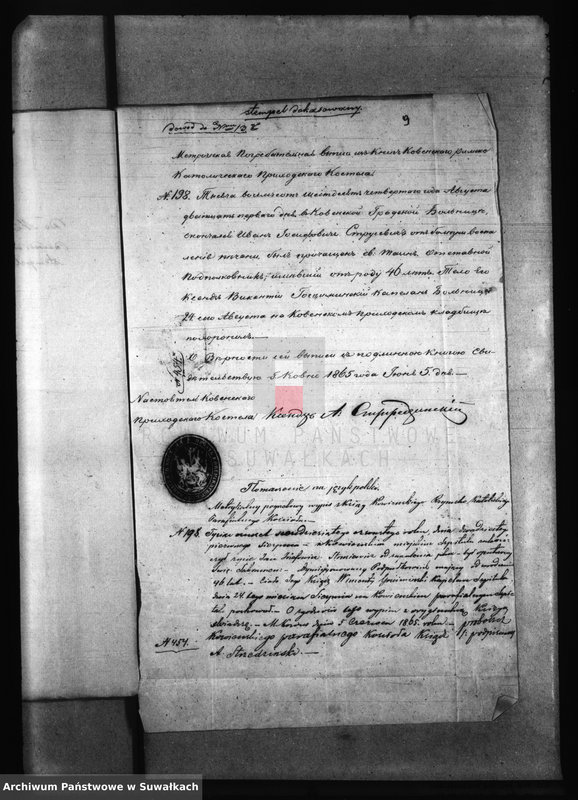 stempel dokasowany
9
dowod do Nru 132
Метрическая Погребательная выпись изъ Книгъ Ковенского римско
Католического Приходского Костела
№ 198. Тысяча восемьсотъ шестьдесятъ четвертого года Августа
двадцать перваго дня въ Ковенской Градской Больницѣ,
скончался Иванъ Осифовичъ Струсевичъ отъ болезни воспа
ленія печени былъ пріобщенъ св. Таинъ, Отставной
Подполковникъ, имѣвшій отъ роду 46 лѣтъ. Тѣло его
Ксендзъ Викентій Капеланъ Больницы
24 сего Августа на Ковенскомъ Приходскомъ кладбищѣ
похоронилъ.
О Вѣрности сей выписи съ подлинною Книгою Сви
дѣтельствую Ковно 1865 года Іюня 5 дня.
Настоятель Ковенского
Приходского Костела Ксендзъ А.
ARCHIWUM PAŃSTWOWE
W SUWAŁKACH
na język polski
Metrykalny pogrzebowy wypis z Ksiąg Kowieńskiego Rzymsko Katolickiego
Parafialnego Kościoła.
N 198. Tysiąc osmset szescdziesiątego czwartego roku, dnia dwudziestego
pierwszego Sierpnia w Kowieńskim miejskim szpitalu zakoń
czył życie Jan
Podpułkownik mający od urodzenia
46 lat. Ciało Jego Ksiądz Wincenty Kapelan Szpitala
dnia 24 tego miesiąca Sierpnia na Kowieńskim parafialnym
pochował. O zgodności tego wypisu z oryginalną Księgą
świadczę. M. Kowno dnia 5 Czerwca 1865 roku
Kowieńskiego parafialnego Kościoła Ksiądz /: podpisany
N 454.
A.
Archiwum Państwowe w Suwałkach